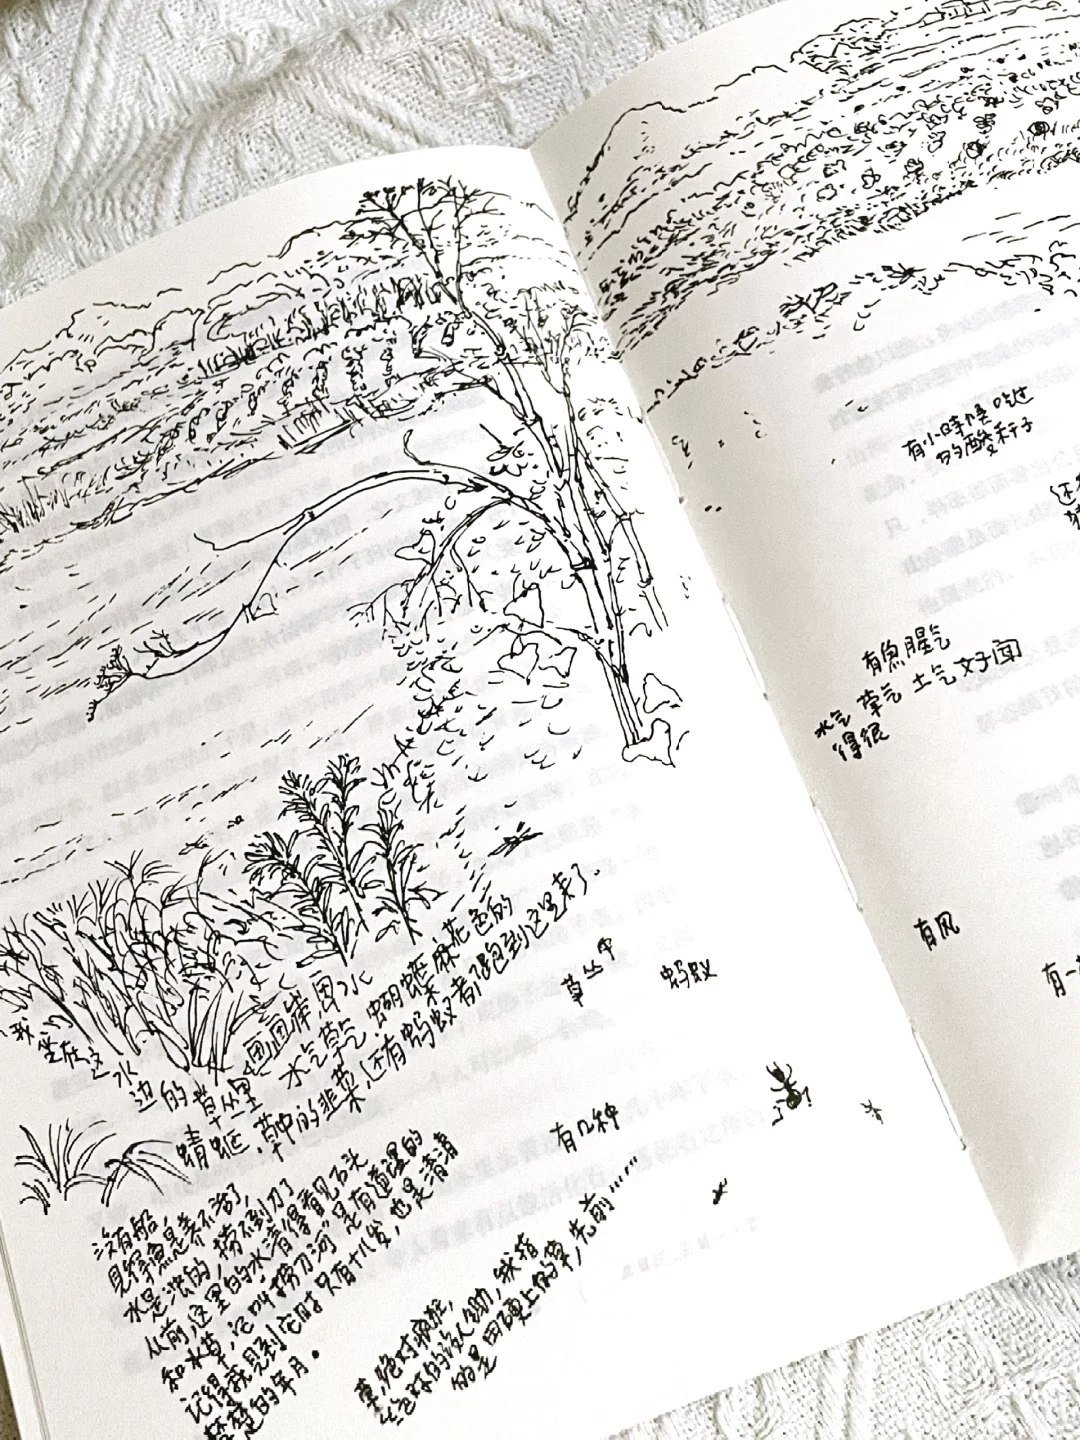 我坐在这水
边的草丛里画画,岸围水
水气草气 蝴蝶麻花色的
蜻蜓.草中的韭菜,还有蚂蚁都跑到这里来了.
没有船,
见得鱼是养不活了,
水是浊的,捞不到刀了
从前,这里的水清得看见石头
和水草,它叫“捞刀河”是有道理的
记得我见到它时只有十八岁,也是清清
楚楚的年月。
草,绝对疯狂,
绝对的改人锄,我指
的是田埂上的草,先前……
草丛中
蚂蚁
有几种
有小时候吃过
的酸秆子
还有
有鱼腥气
水气 草气 土气 好闻
得很
有风
有一